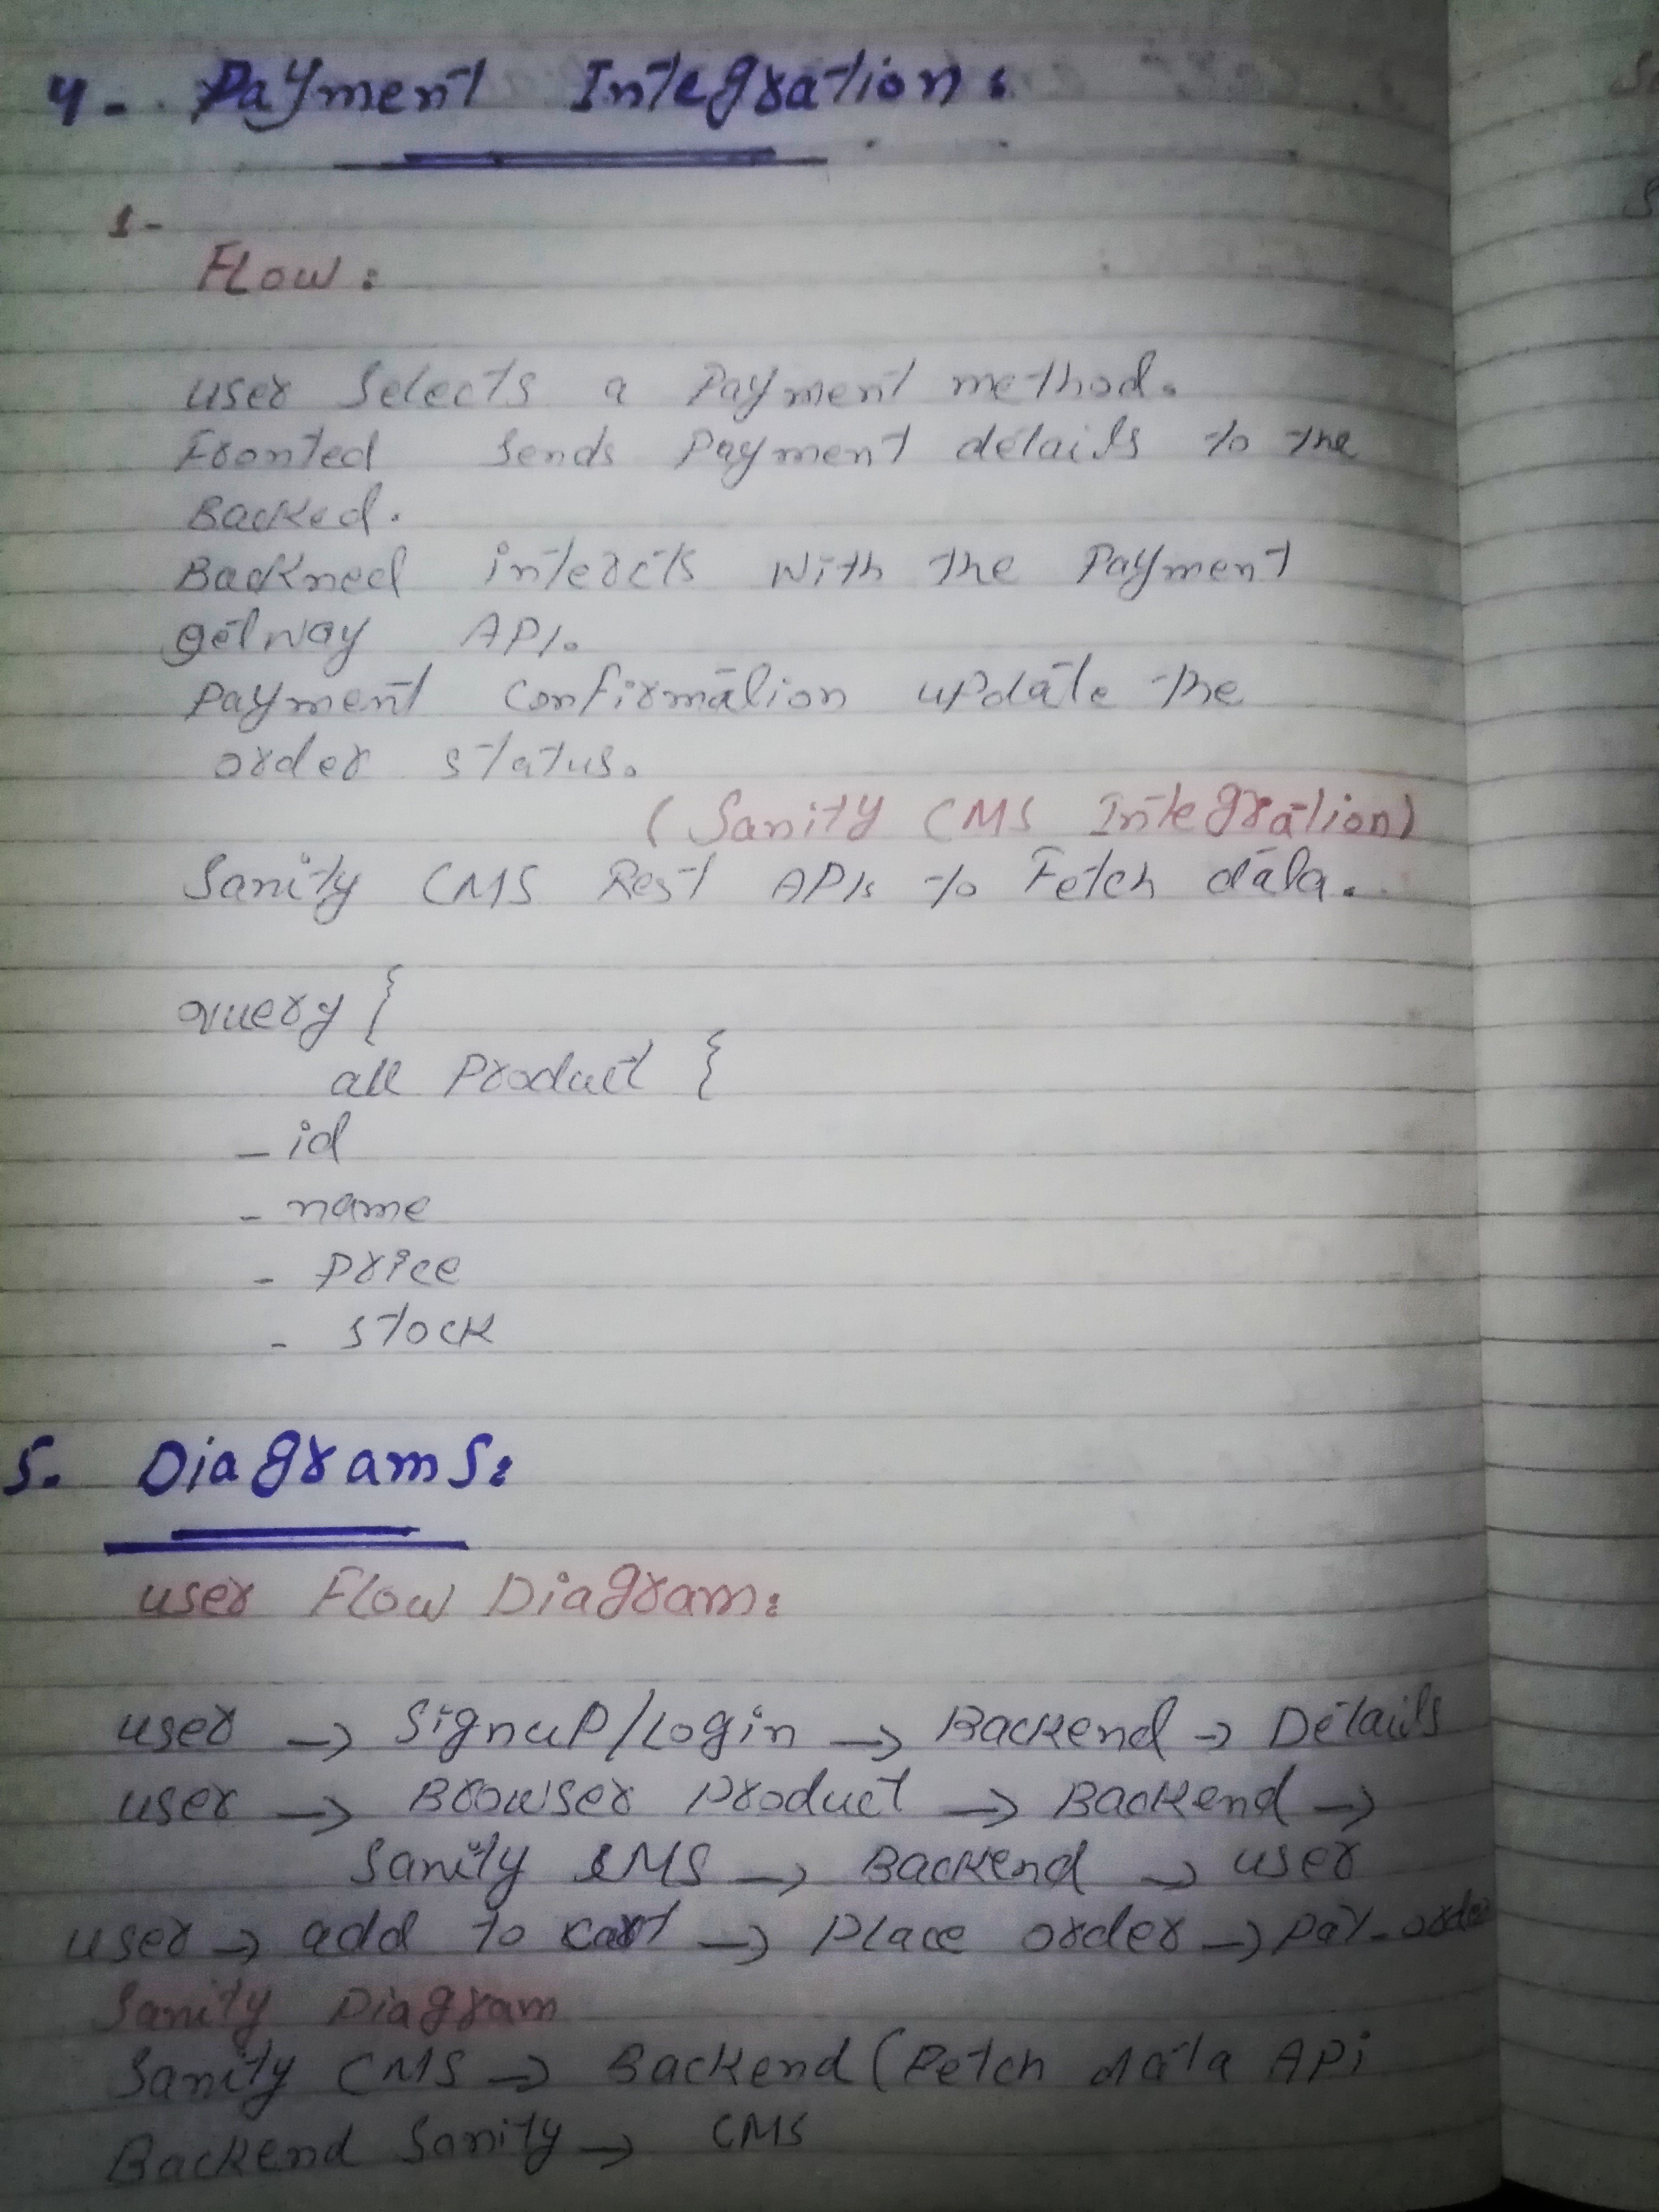 4. Payment Integration:
1-
Flow:
user Selects a Payment method.
Fronted Sends Payment details to the
Backed.
Backned intercts With the Payment
getway API.
Payment Confirmation update the
order status.
(Sanity CMS Integration)
Sanity CMS Rest APIs to Fetch data.
query {
all Product {
- id
- name
- Price
- stock
5. Diagrams:
user Flow Diagram:
user → SignuP/Login → Backend → Details
user → Browser Product → Backend →
Sanity CMS → Backend → user
user → add to cart → Place order → Pay-order
Sanity Diagram
Sanity CMS → Backend (Fetch data APi
Backend Sanity → CMS